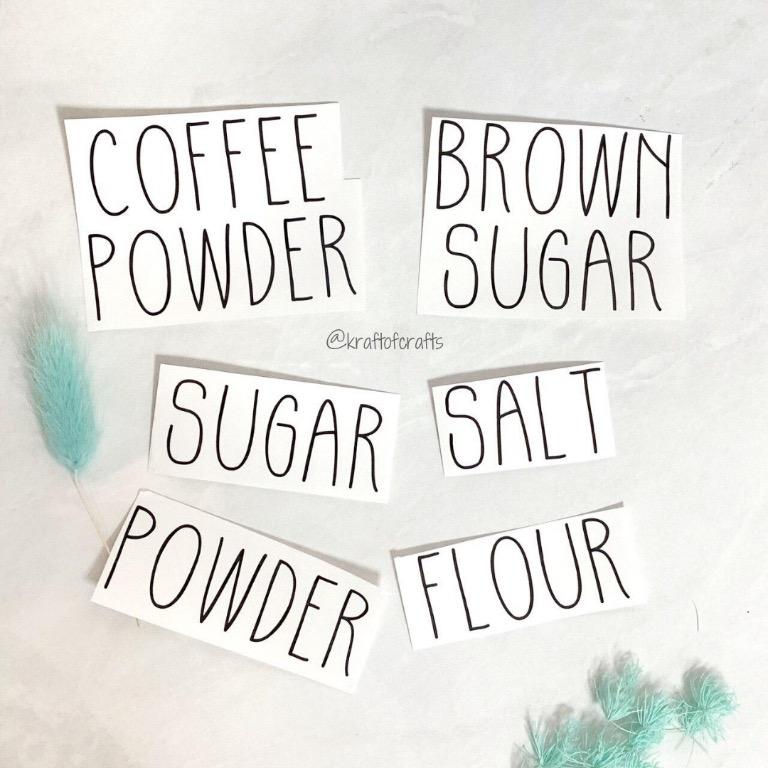 COFFEE
POWDER
BROWN
SUGAR
@kraftofcrafts
SUGAR
SALT
POWDER
FLOUR